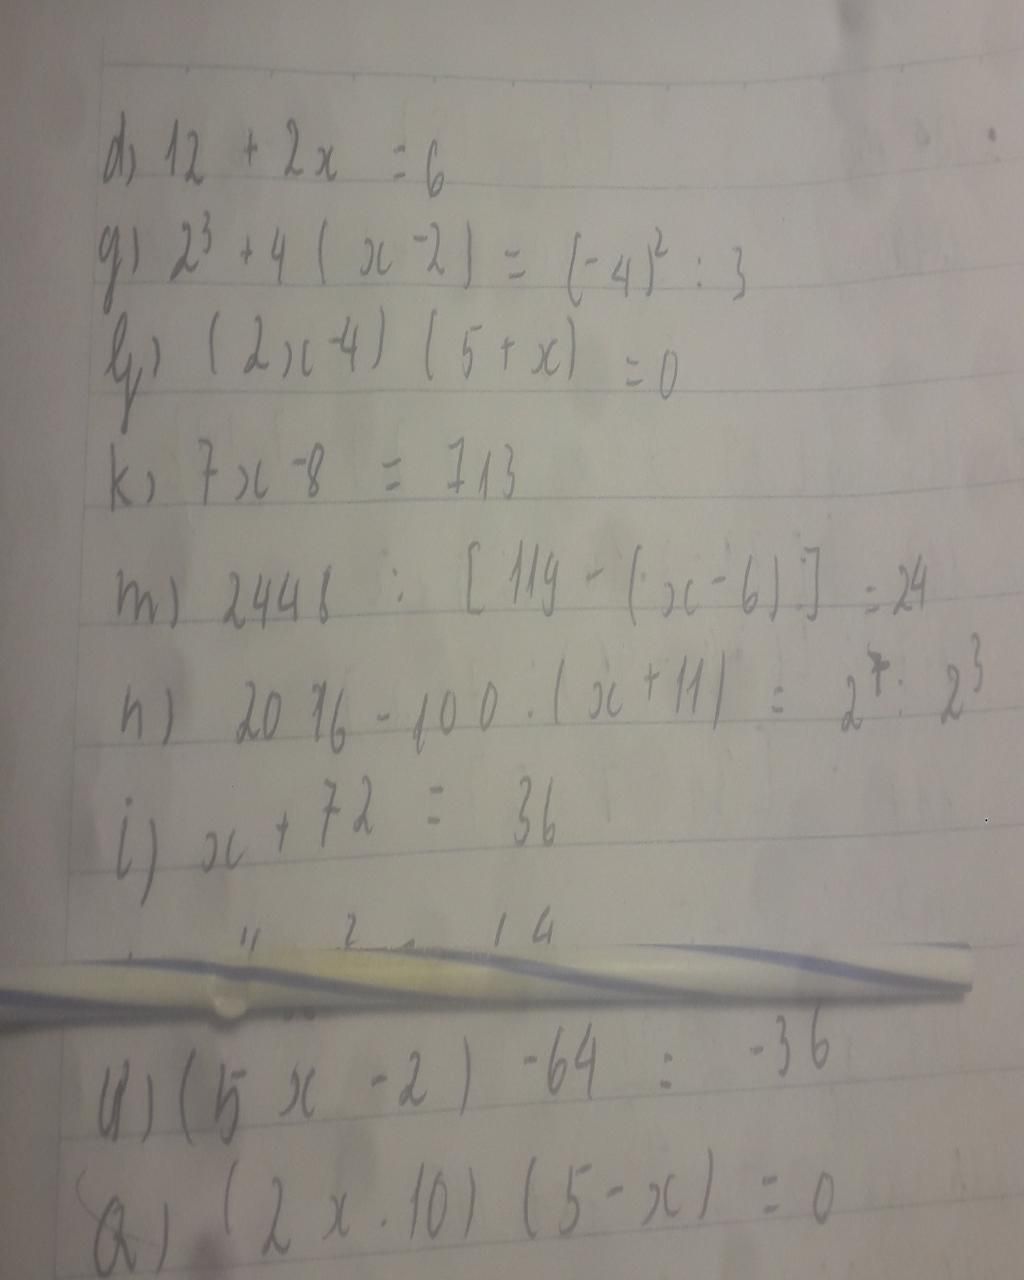 d) 12 + 2x = 6
g) 2³ + 4 ( x - 2 ) = (-4)² : 3
h) (2x-4) (5+x) = 0
k) 7x - 8 = 713
m) 2448 : [ 119 - ( x - 6 ) ] = 24
n) 2016 - 100 . ( x + 11 ) = 2⁷ : 2³
i) x + 72 = 36
(5x - 2) - 64 = -36
Q) (2x . 10) (5 - x) = 0